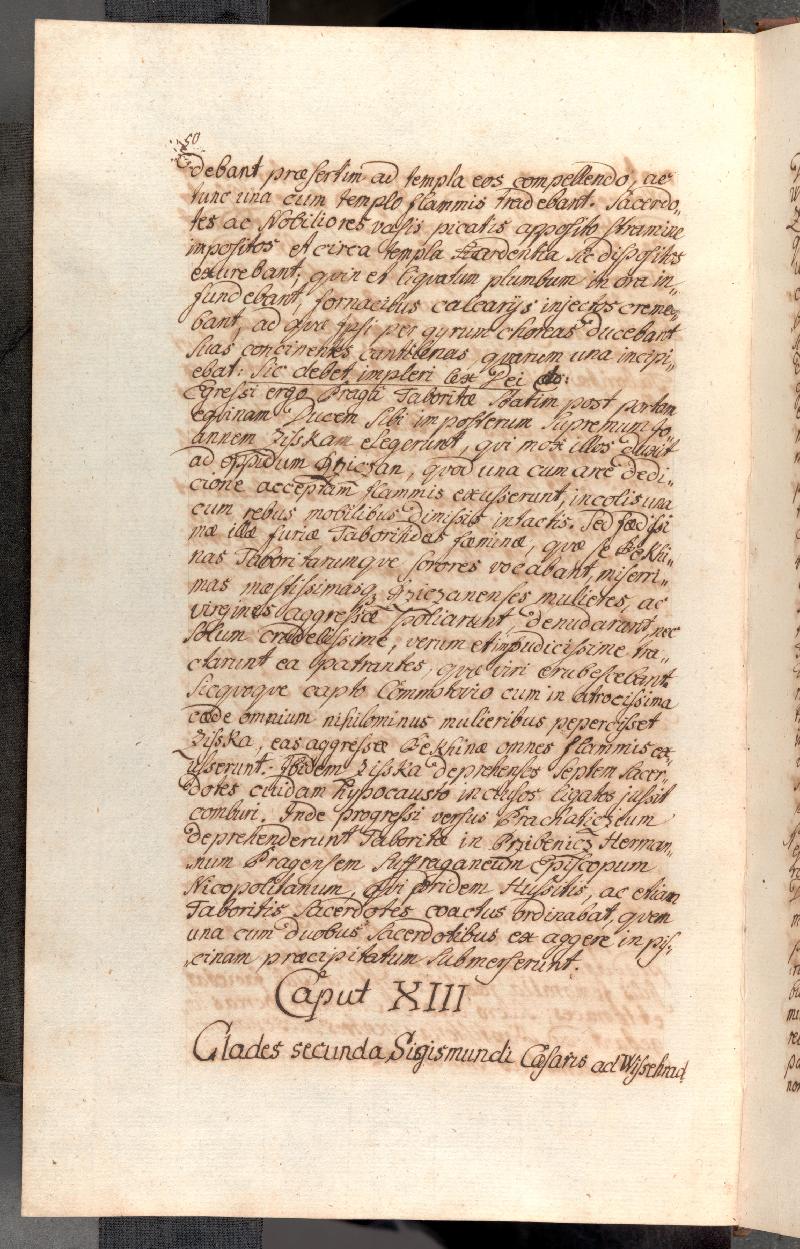 50
debant præsertim ad templa eos compellendo, ac
tunc una cum templo flammis tradebant. Sacerdo„
tes ac Nobiliores vasis picatis apposito stramine
impositos et circa templa ardentia sic dispositos
exurebant; quin et liquatum plumbum in ora in„
fundebant, fornacibus calcarijs injectos crema„
bant, ad quæ ipsi per gyrum choreas ducebant
suas concinentes cantilenas quarum una incipi„
ebat: Sic debet impleri lex Dei
Egressi ergo Pragâ Taboritæ statim post portam
equinam Ducem sibi imposterum supremum Jo„
annem Zisskam elegerunt, qui mox illos duxit
ad oppidum Rziczan, quod una cum arce dedi„
cione acceptam flammis exusserunt, incolis una
cum rebus mobilibus dimissis intactis. Sed fædissi
mæ illæ furiæ Taboritides fæminæ, quæ se Bekhi„
nas Taboritarumque sorores vocabant, miserri„
mas mæstissimasq Rziczanenses mulieres, ac
virgines aggressæ spoliarunt, denudarunt, nec
solum crudelissime, verum et impudicissime tra„
ctarunt ea patrantes, quæ viri erubescebant.
Sicquoque capto Commotovio cum in atrocissima
cæde omnium nihilominus mulieribus pepercisset
Zisska, eas aggressæ Bekhinæ omnes flammis ex„
usserunt. Ibidem Zisska deprehensos septem Sacer„
dotes cuidam hypocausto inclusos ligatos jussit
comburi. Inde progressi versus Prachaticzium
deprehenderunt Taboritæ in Przibenicz Herman„
num Pragensem Suffraganeum Episcopum
Nicopolitanum, qui pridem Hussitis, ac etiam
Taboritis Sacerdotes coactus ordinabat, quem
una cum duobus Sacerdotibus ex aggere in pis„
cinam præcipitatum submerserunt.
Caput XIII
Clades secunda Sigismundi Cæsaris ad Wissehrad